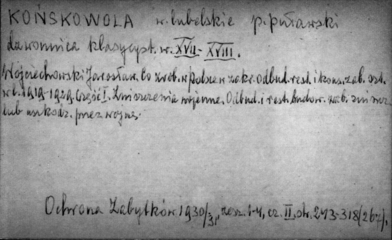 KOŃSKOWOLA w. lubelskie p. puławski
dzwonnica klasycyst. w. XVII - XVIII.
Wojciechowski Jarosław. Co zrob. w Polsce w zakr. odbud. rest. i kons. zab. ost.
w l. 1919-1929. Część I. Zniszczenia wojenne. Odbud. i rest. budow. zab. zniszcz.
lub uszkodz. przez wojnę.
Ochrona Zabytków 1930/31, zesz. 1-4, cz. II, str. 243-318